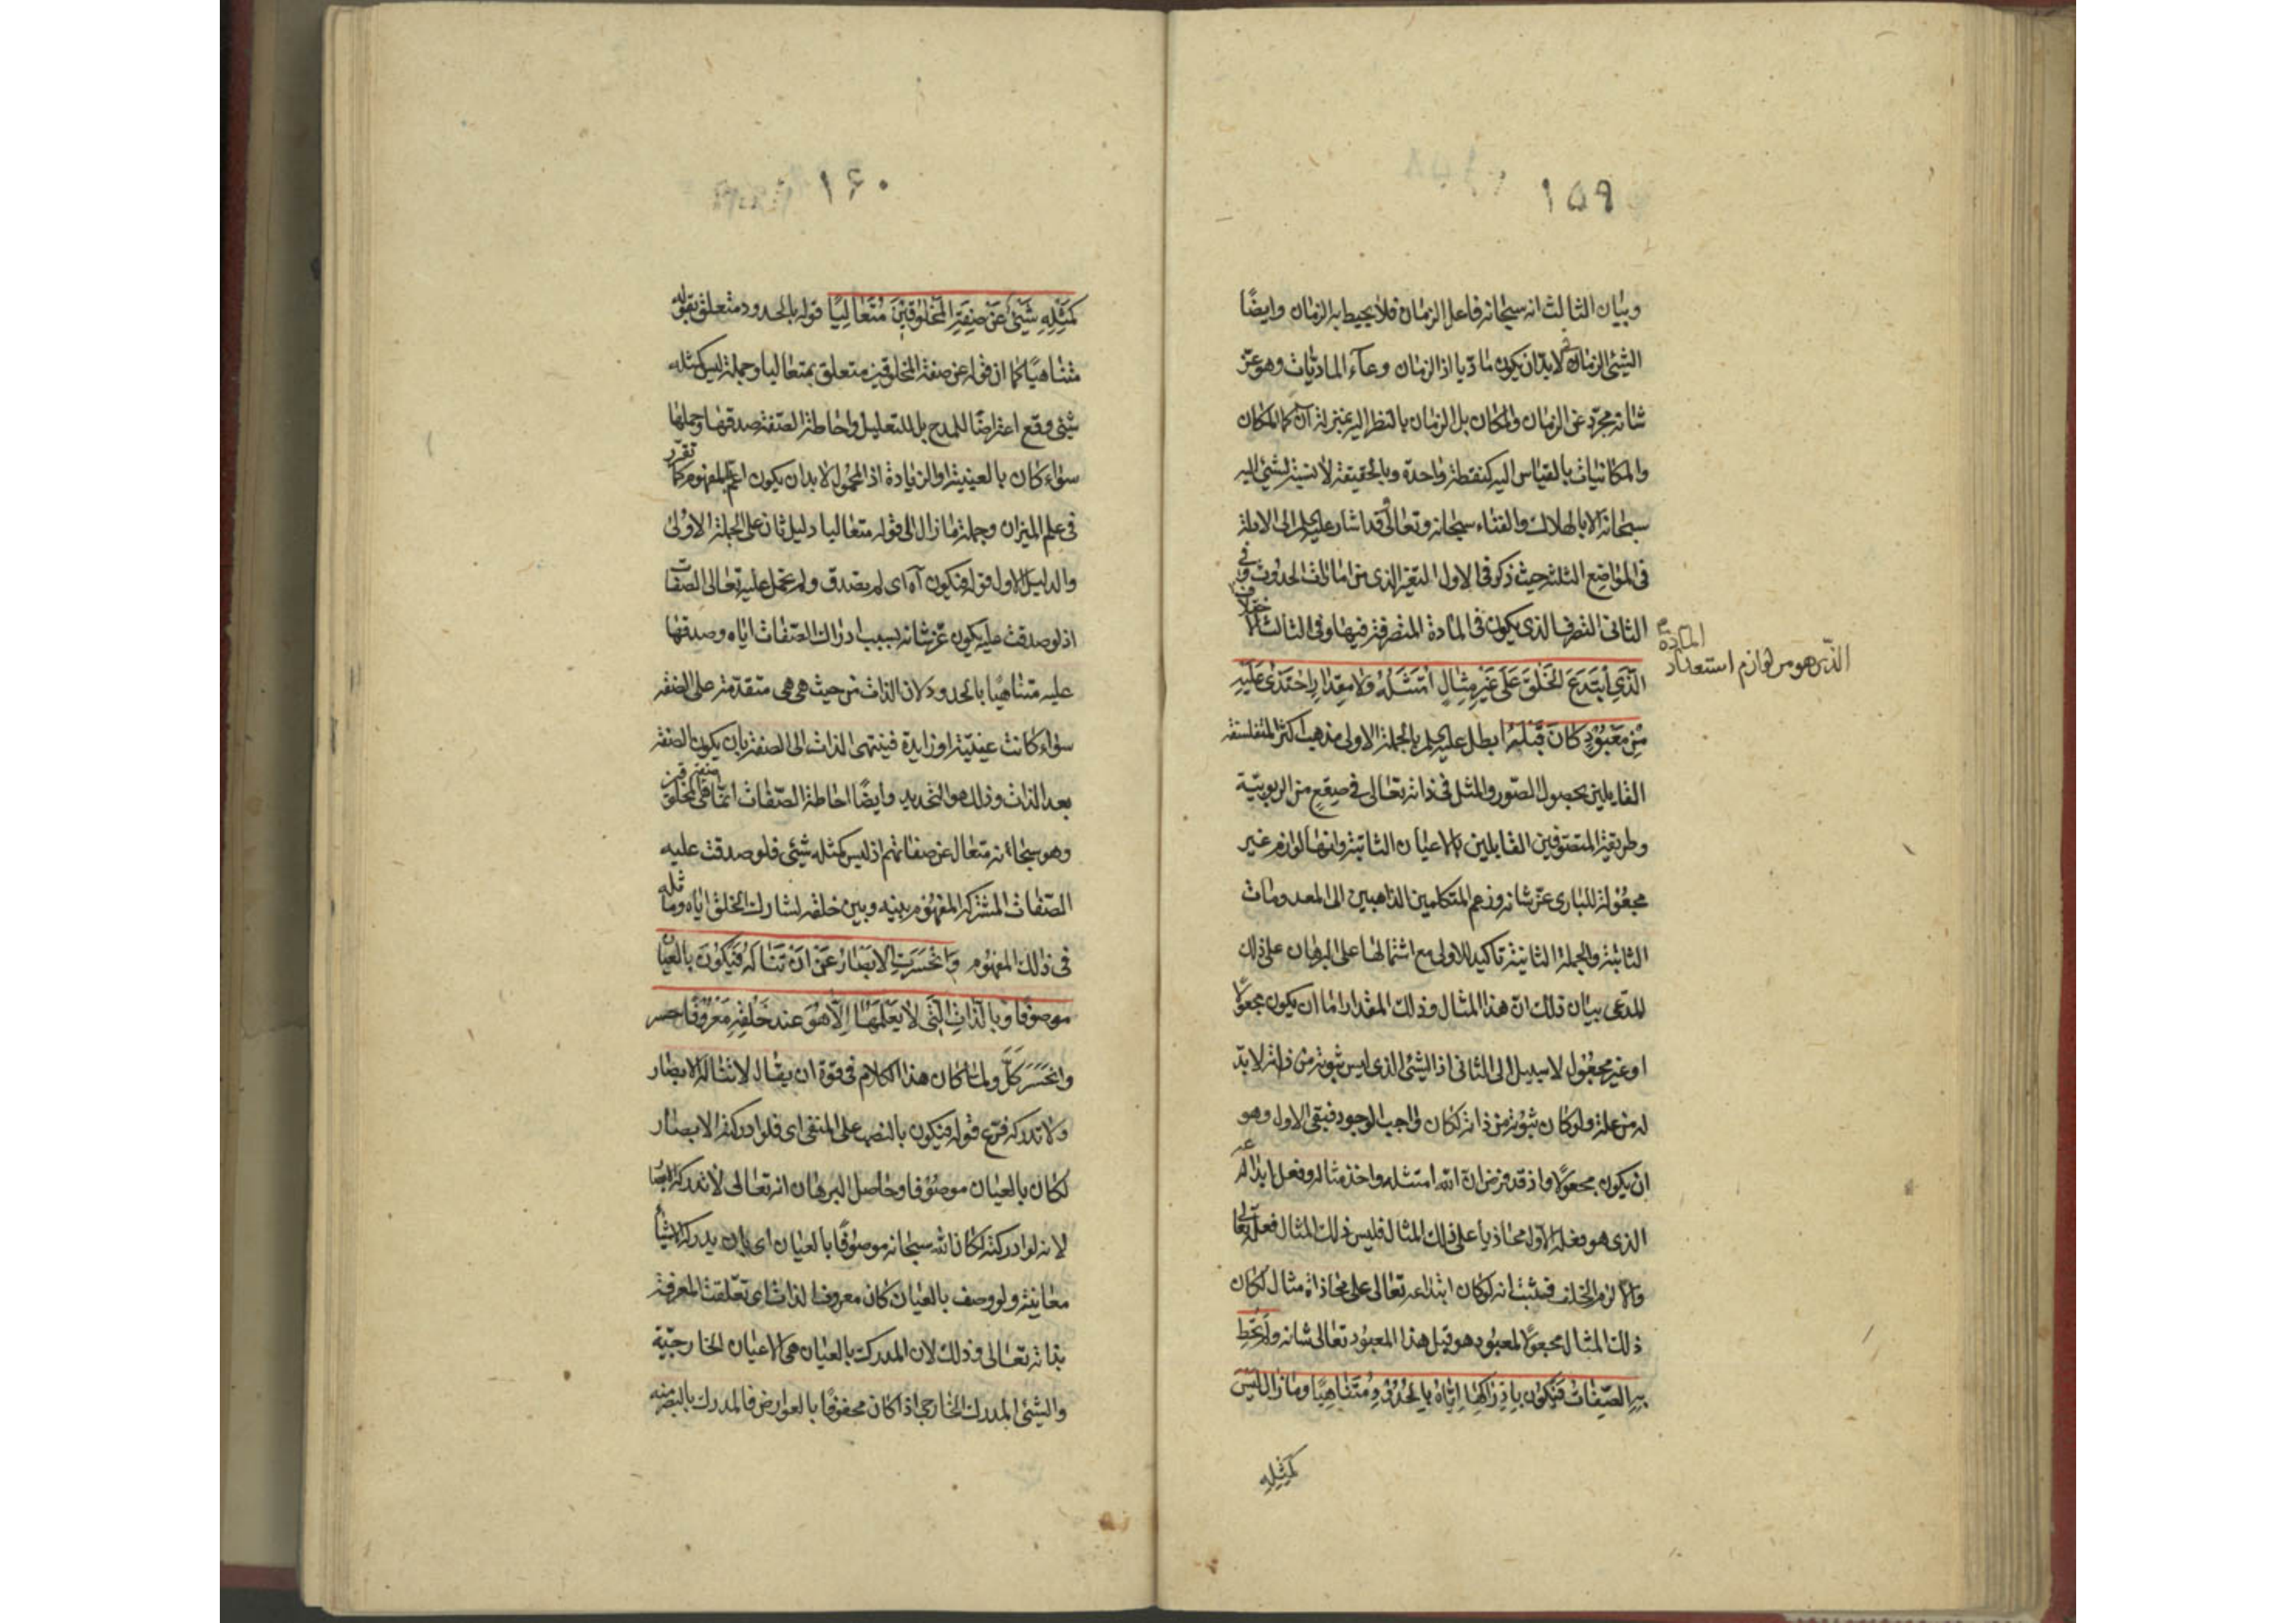 ١٥٩
وبيان الثالث انه سبحانه فاعل الزمان فلا يحيط به الزمان وايضًا
الشيئ الزمانى لا بدّ ان يكون ماديا اذ الزمان وعآء الماديّات وهو عزّ
شانه مجرّد عن الزمان والمكان بل الزمان بالنظر اليه بمنزلة آن كما المكان
والمكانيات بالقياس اليه كنقطة واحدة وبالحقيقة لا نسبة لشيئ اليه
سبحانه الا بالهلاك والفناء سبحانه وتعالى وقد اشار عليه السلم الى الادلة
فى المواضع الثلثة حيث ذكر فى الاول التغير الذى من امارات الحدوث وفى
الثانى التصرف الذى يكون فى المادة المتصرفة فيها وفى الثالث الاختلاف
الذى هو من لوازم استعداد المادة
الَّذى ابْتَدَعَ الخَلْقَ عَلى غَيْرِ مِثالٍ امْتَثَلَهُ وَلا مِقدارٍ احْتَذى عَلَيْهِ
مِنْ مَعْبُودٍ كانَ قَبْلَهُ ابطل عليه السلم بالجملة الاولى مذهب اكثر المتفلسفة
القايلين بحصول الصّور والمثل فى ذاته تعالى فى صقع من الربوبيّة
وطريقة المتصوّفين القايلين بالاعيان الثابتة وانها لوازم غير
مجعولة للبارى عزّ شانه وزعم المتكلمين الذاهبين الى المعدومات
الثابتة والجملة الثانية تاكيد للاولى مع اشتمالها على البرهان على ذلك
المدّعى بيان ذلك انّ هذا المثال وذلك المقدار اما ان يكون مجعولًا
او غير مجعول لا سبيل الى الثانى اذ الشيئ الذى ليس ثبوته من ذاته لا بدّ
له من علة ولو كان ثبوته من ذاته لكان واجب الوجود فبقى الاول وهو
ان يكون مجعولًا واذ قد فرض انّ الله امتثله واخذ مثاله وفعل ابداعه
الذى هو فعله الاول محاذيا على ذلك المثال فليس ذلك المثال فعله تعالى
والّا لزم الخلف فيثبت انه لو كان ابتداعه تعالى على محاذاة مثال لكان
ذلك المثال مجعولًا لمعبود هو قبل هذا المعبود تعالى شانه وَلَمْ تُحِطْ
بِهِ الصِّفاتُ فَيَكُونَ بِاِدْراكِها اِيّاهُ بِالحُدُودِ مُتَناهِيًا وَما زالَ لَيْسَ
كَمِثْلِهِ
١٦٠
كَمِثْلِهِ شَيْئٌ عَنْ صِفَةِ المَخْلُوقينَ مُتَعالِيًا قوله بالحدود متعلق بقوله
متناهيًا كما ان قوله عن صفة المخلوقين متعلق بمتعاليا وجملة ليس كمثله
شيئ وقع اعتراضًا للمدح بل للتعليل واحاطة الصّفة صدقها وحملها
سواء كان بالعينية او الزيادة اذ المحمول لا بد ان يكون اعم المفهوم كما تقرّر
فى علم الميزان وجملة ما زال الى قوله متعاليا دليل ثان على الجملة الاولى
والدليل الاول قوله فيكون آه اى لم يصدق ولم تحمل عليه تعالى الصفات
اذ لو صدقت عليه يكون عزّ شانه بسبب ادراك الصّفات اياه وصدقها
عليه متناهيًا بالحدود لان الذات من حيث هى هى متقدّمة على الصفة
سواء كانت عينيّة او زايدة فينتهى الذات الى الصفة بان يكون الصفة
بعد الذات وذلك هو التحديد وايضًا احاطة الصّفات انّما هى صفة المخلوقين
وهو سبحانه متعال عن صفاتهم اذ ليس كمثله شيئ فلو صدقت عليه
الصّفات المشتركة المفهوم بينه وبين خلقه لشارك الخلق اياه وماثله
فى ذلك المفهوم وَانْحَسَرَتِ الاَبْصارُ عَنْ اَنْ تَنالَهُ فَيَكُونَ بِالعِيانِ
مَوصُوفًا وَبِالذّاتِ الَّتى لا يَعْلَمُها اِلّا هُوَ عِندَ خَلْقِهِ مَعْرُوفًا حسر
وانحَسَرَ كَلَّ ولما كان هذا الكلام فى قوة ان يقال لا تناله الابصار
ولا تدركه فرّع قوله فيكون بالنصب على المنفى اى فلو ادركته الابصار
لكان بالعيان موصوفا وحاصل البرهان انه تعالى لا تدركه الابصار
لانه لو ادركته لكان الله سبحانه موصوفًا بالعيان اى بان يدركه الاشياء
معاينة ولو وصف بالعيان كان معروف الذات اى تعلّقت المعرفة
بذاته تعالى وذلك لان المدرك بالعيان هى الاعيان الخارجيّة
والشيئ المدرك الخارجى اذا كان محفوفًا بالعوارض فالمدرك بالبصر منه